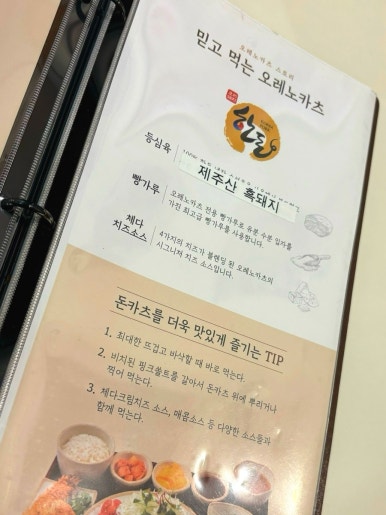 오레노카츠 스토리
믿고 먹는 오레노카츠
한돈
등심육
제주산 흑돼지
빵가루
오레노카츠 전용 빵가루로 유분 수분 입자를
가진 최고급 빵가루를 사용합니다.
체다
치즈소스
4가지의 치즈가 블렌딩 된 오레노카츠의
시그니처 치즈 소스입니다.
돈카츠를 더욱 맛있게 즐기는 TIP
1. 최대한 뜨겁고 바삭할 때 바로 먹는다.
2. 비치된 핑크쏠트를 갈아서 돈카츠 위에 뿌리거나
찍어 먹는다.
3. 체다크림치즈 소스, 매콤소스 등 다양한 소스들과
함께 먹는다.